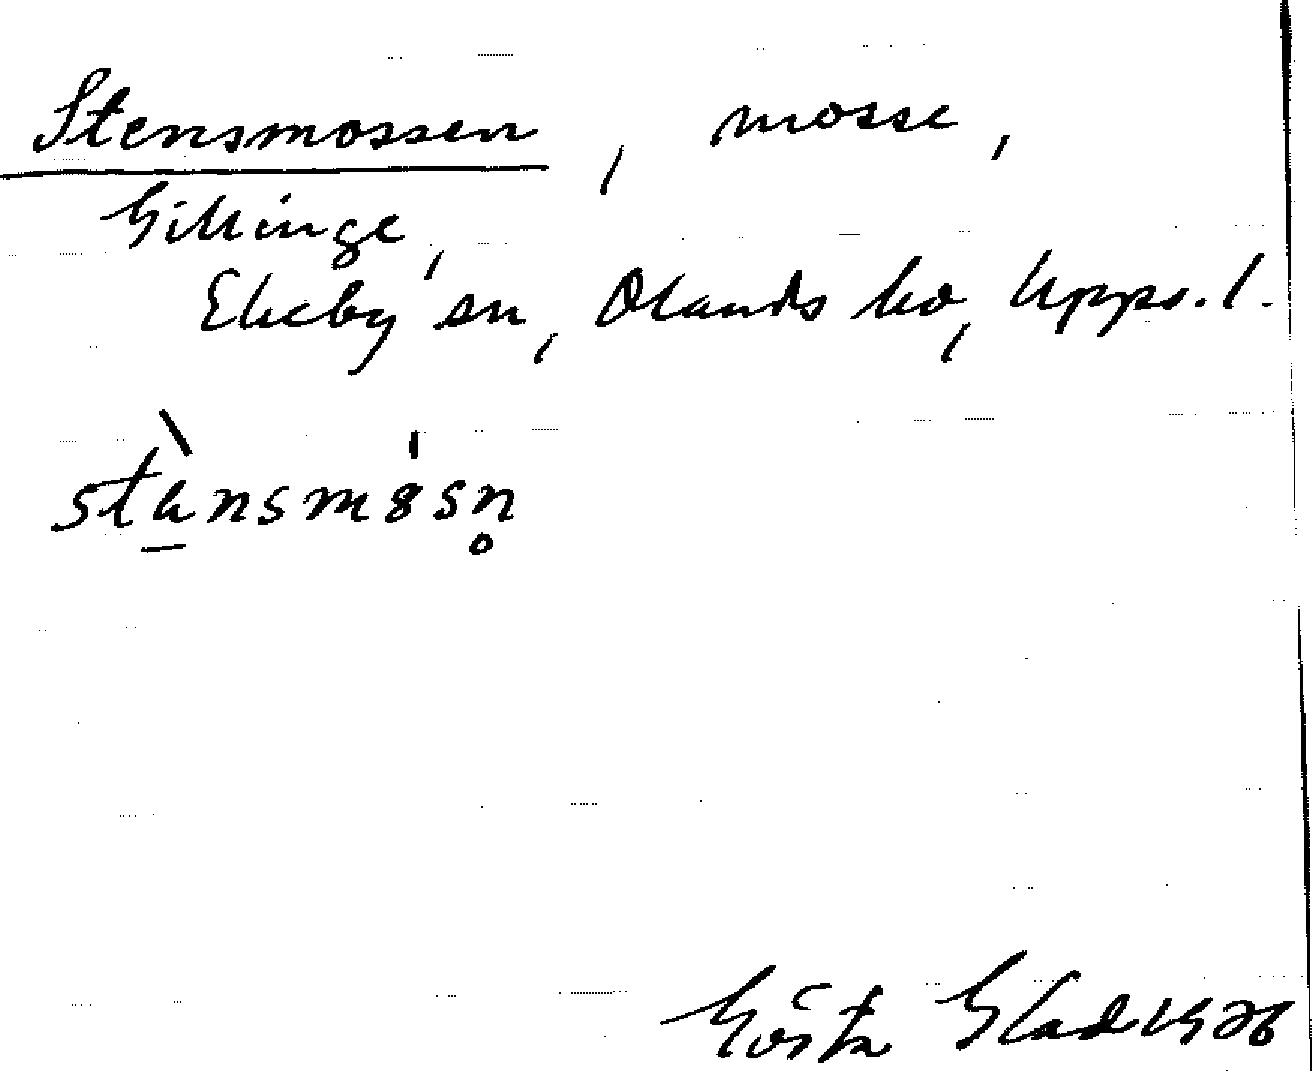 Stensmossen, mosse,
Gillinge,
Ekeby sn, Olands hd, Upps. l.
Gösta Glad 1926